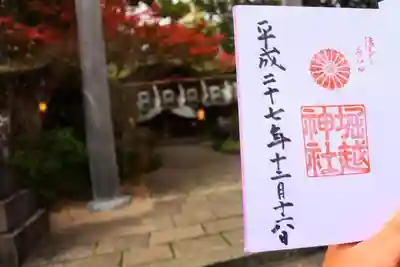 堀越
神社
平成二十七年十二月十六日